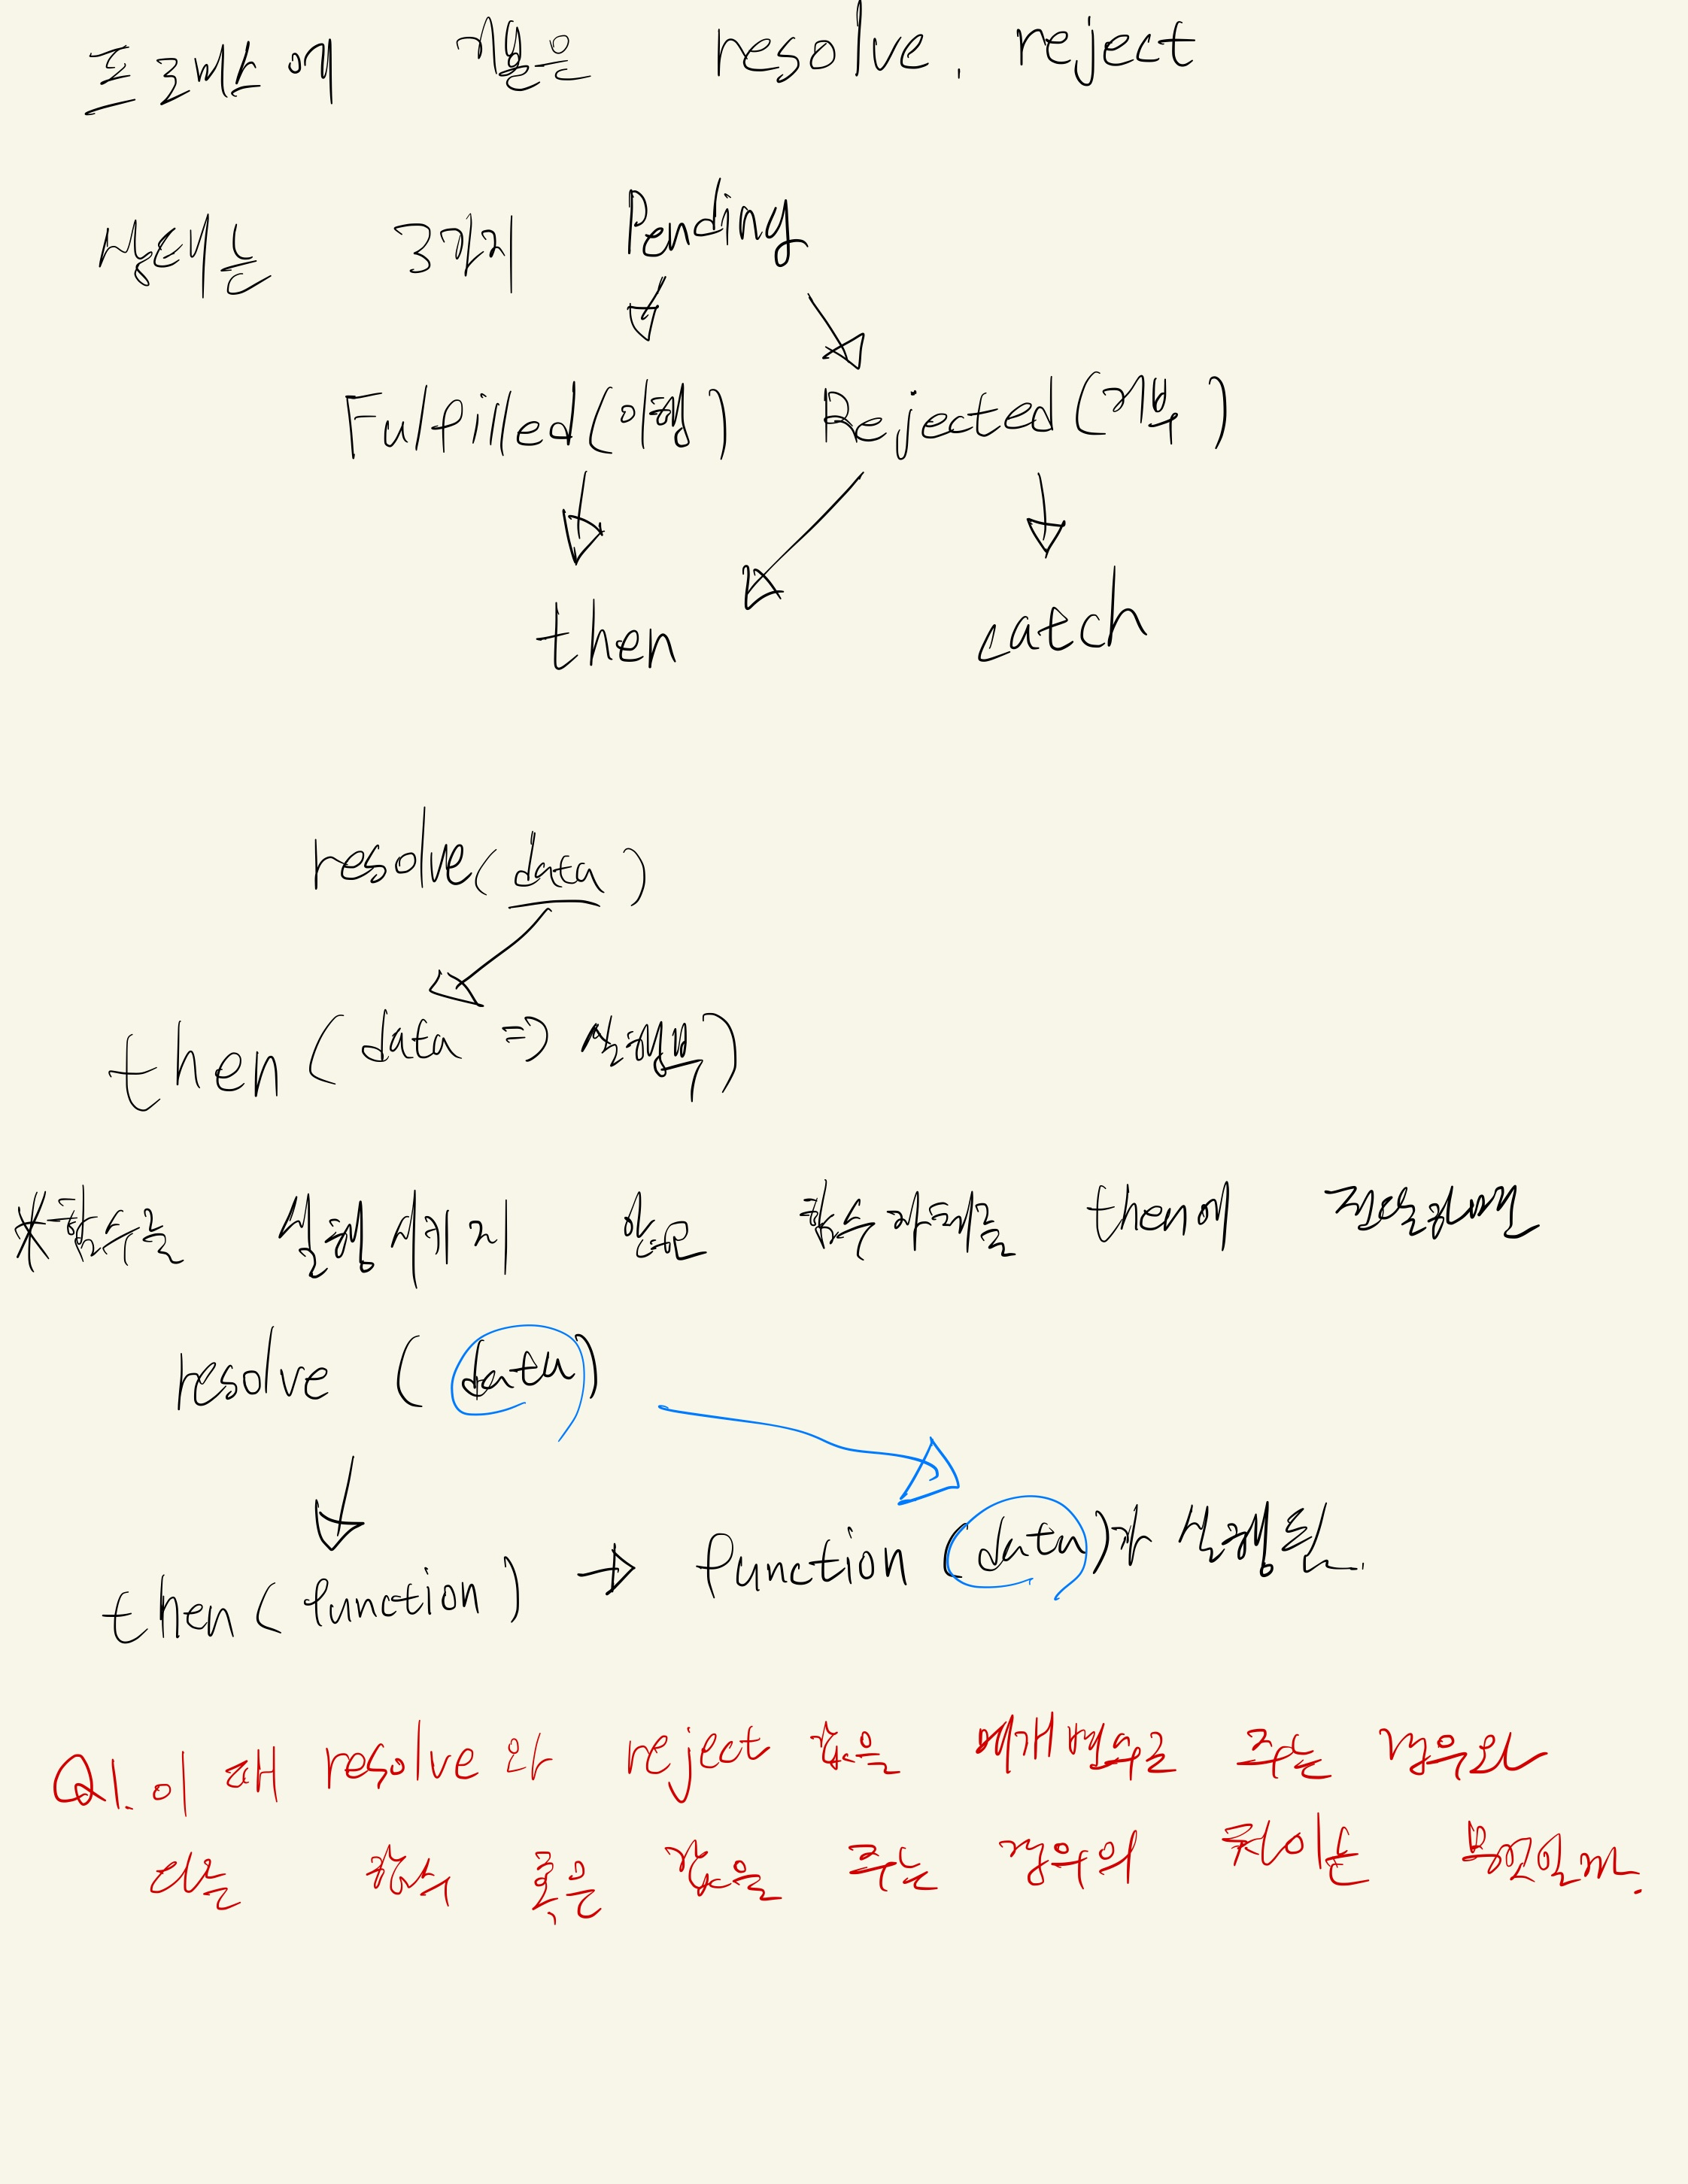 프로미스에 기본은 resolve, reject
상태는 3가지 Pending
Fulfilled(이행) Rejected(거부)
then catch
resolve(data)
then(data => 실행부)
*함수를 실행시키지 않고 함수자체를 then에 전달하면
resolve (data)
then(function) → function(data)가 실행된.
Q1. 이 때 resolve와 reject 값을 매개변수로 주는 경우와
다른 함수 혹은 값을 주는 경우의 차이는 무엇일까.